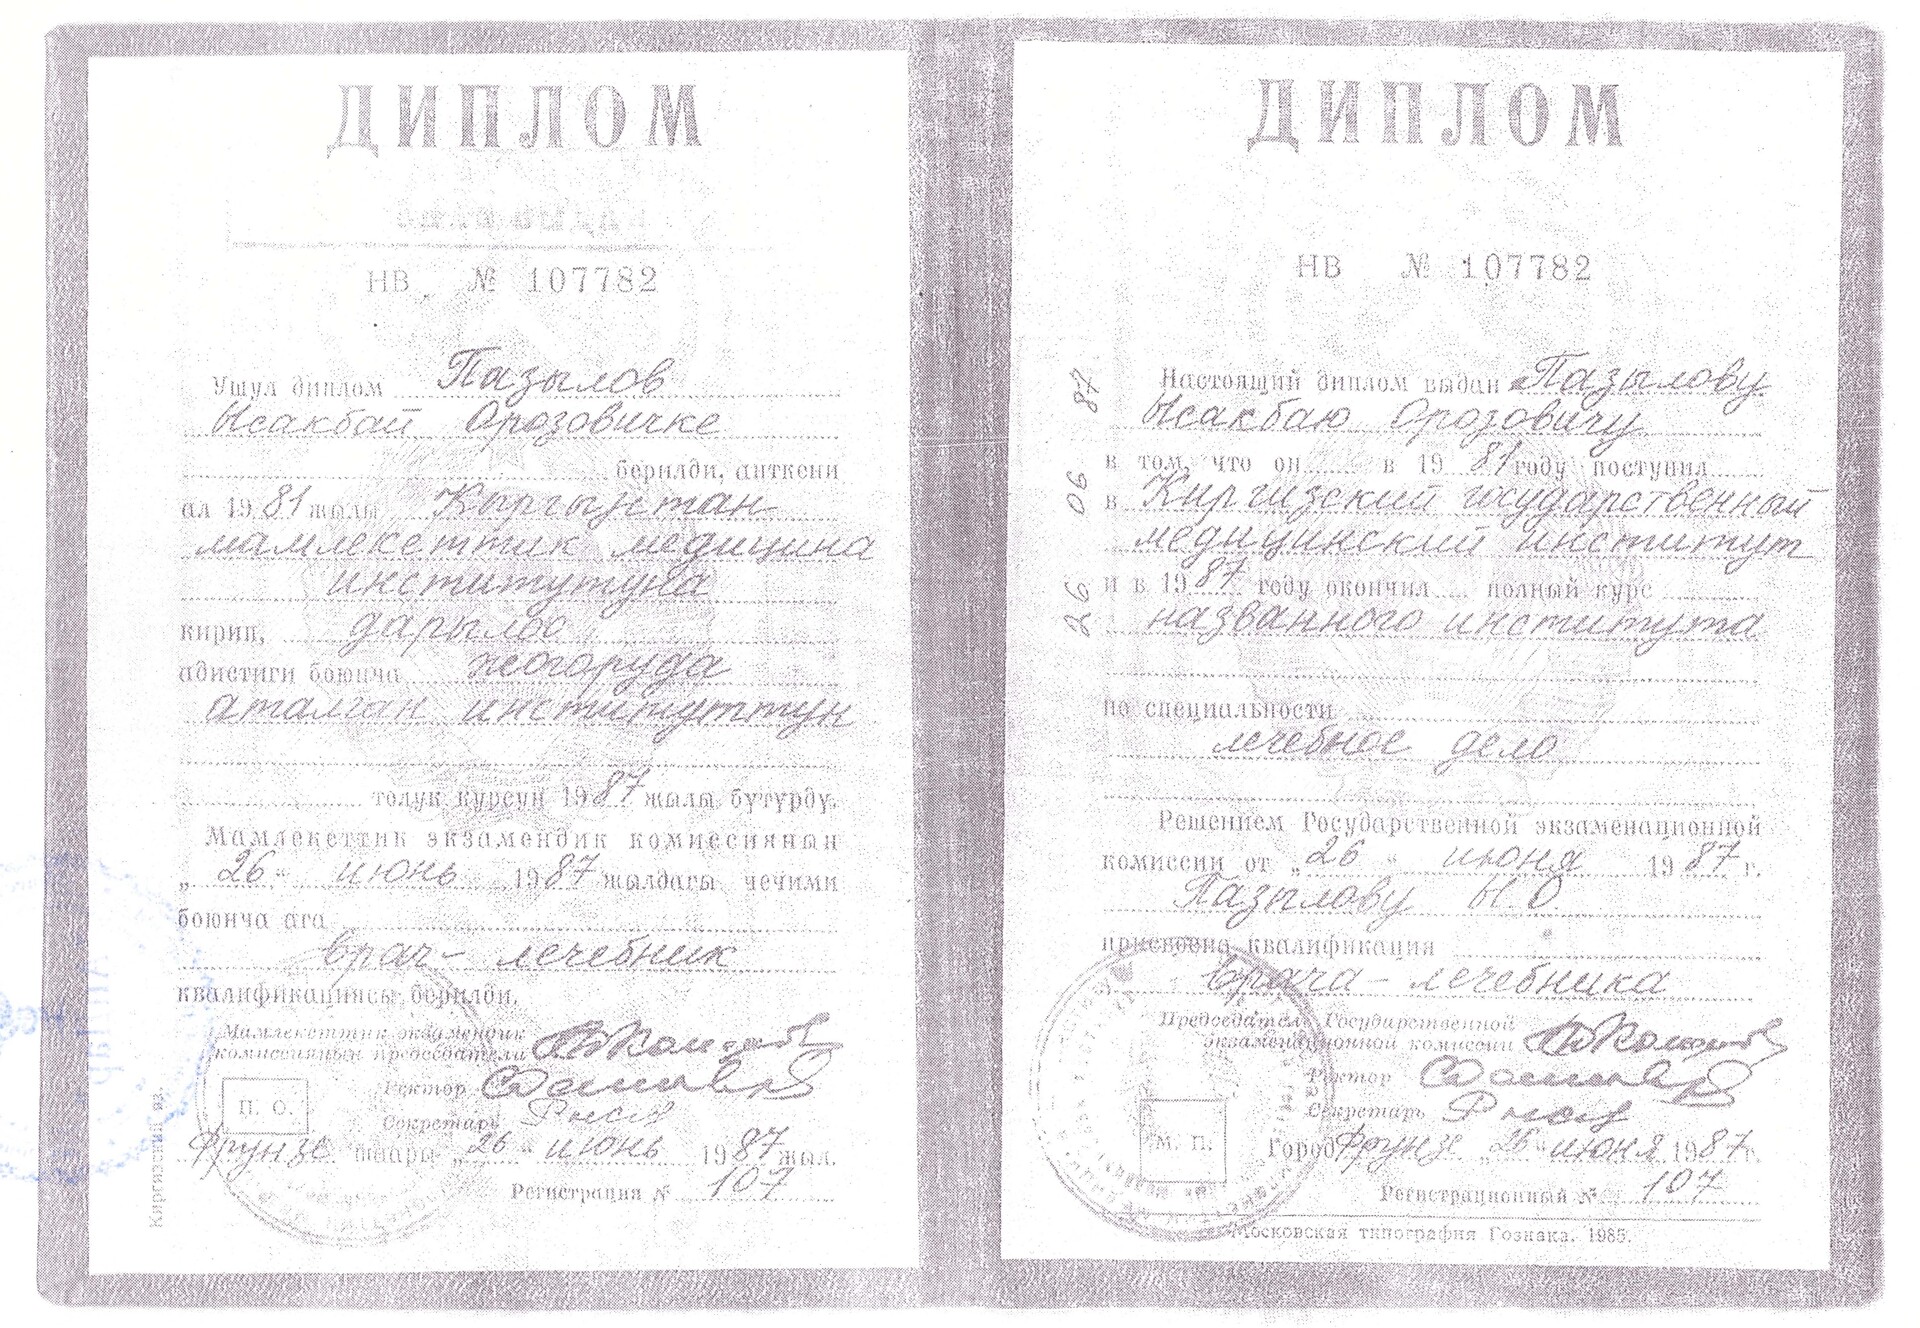 ДИПЛОМ
НВ № 107782
Ушул диплом Пазылов
Исакбай Орозовичке
берилди, анткени
ал 1981 жылы Кыргызстан
мамлекеттик медицина
институтуна
кирип, дарылоо
адистиги боюнча жогоруда
аталган институттун
толук курсун 1987 жылы бүтүрдү.
Мамлекеттик экзамендик комиссиянын
„26“ июнь 1987 жылдагы чечими
боюнча ага
врач-лечебник
квалификациясы берилди.
Мамлекеттик экзамендик
комиссиянын председатели
Ректор
Секретарь
П. О.
Фрунзе шаары „26“ июнь 1987 жыл.
Регистрация № 107
Киргизский яз.
ДИПЛОМ
НВ № 107782
Настоящий диплом выдан Пазылову
Исакбаю Орозовичу
в том, что он в 1981 году поступил
в Киргизский государственный
медицинский институт
и в 1987 году окончил полный курс
названного института
по специальности
лечебное дело
Решением Государственной экзаменационной
комиссии от „26“ июня 1987 г.
Пазылову И.О
присвоена квалификация
врача-лечебника
Председатель Государственной
экзаменационной комиссии
Ректор
Секретарь
М. П.
Город Фрунзе „26“ июня 1987 г.
Регистрационный № 107
Московская типография Гознака. 1985.
26 06 87